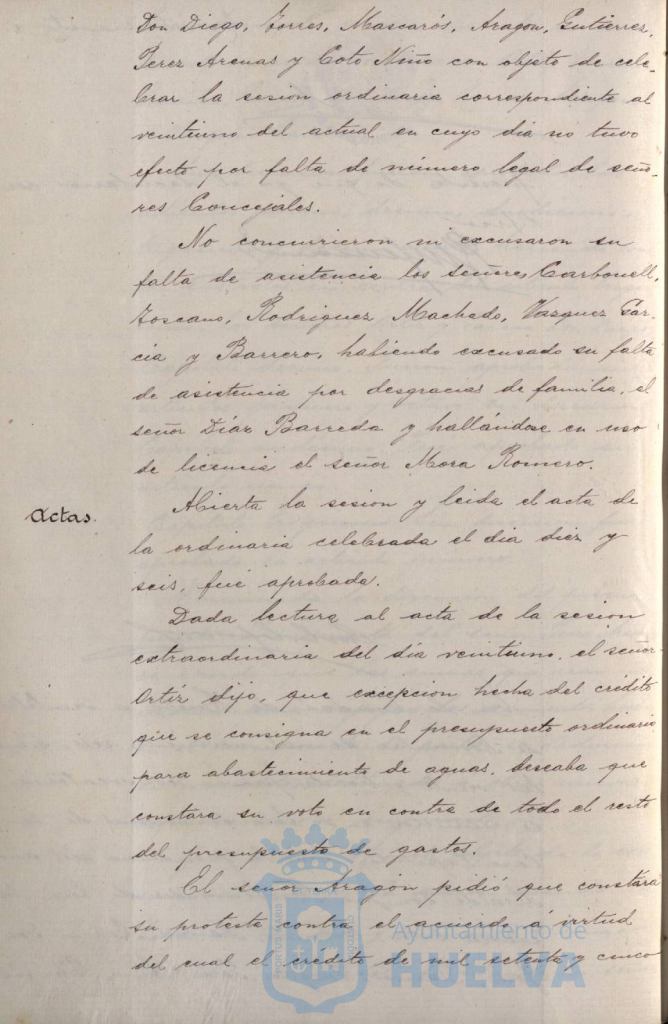 Don Diego, Torres, Mascarós, Aragon, Gutierrez,
Perez Arenas y Coto Niño con objeto de cele-
brar la sesion ordinaria correspondiente al
veintiuno del actual en cuyo dia no tuvo
efecto por falta de número legal de seño-
res Concejales.
No concurrieron ni excusaron su
falta de asistencia los señores Carbonell,
Toscano, Rodriguez Machado, Vazquez Gar-
cia y Barrero, habiendo excusado su falta
de asistencia por desgracias de familia, el
señor Díaz Barreda y hallándose en uso
de licencia el señor Mora Romero.
Actas.
Abierta la sesion y leida el acta de
la ordinaria celebrada el dia diez y
seis, fué aprobada.
Dada lectura al acta de la sesion
extraordinaria del día veintiuno, el señor
Ortiz dijo, que excepcion hecha del crédito
que se consigna en el presupuesto ordinario
para abastecimiento de aguas, deseaba que
constara su voto en contra de todo el resto
del presupuesto de gastos.
El señor Aragón pidió que constára
su protesta contra el acuerdo á virtud
del cual el crédito de mil setenta y cinco
PORTUS MARIS
CUSTODIA
Ayuntamiento de
HUELVA